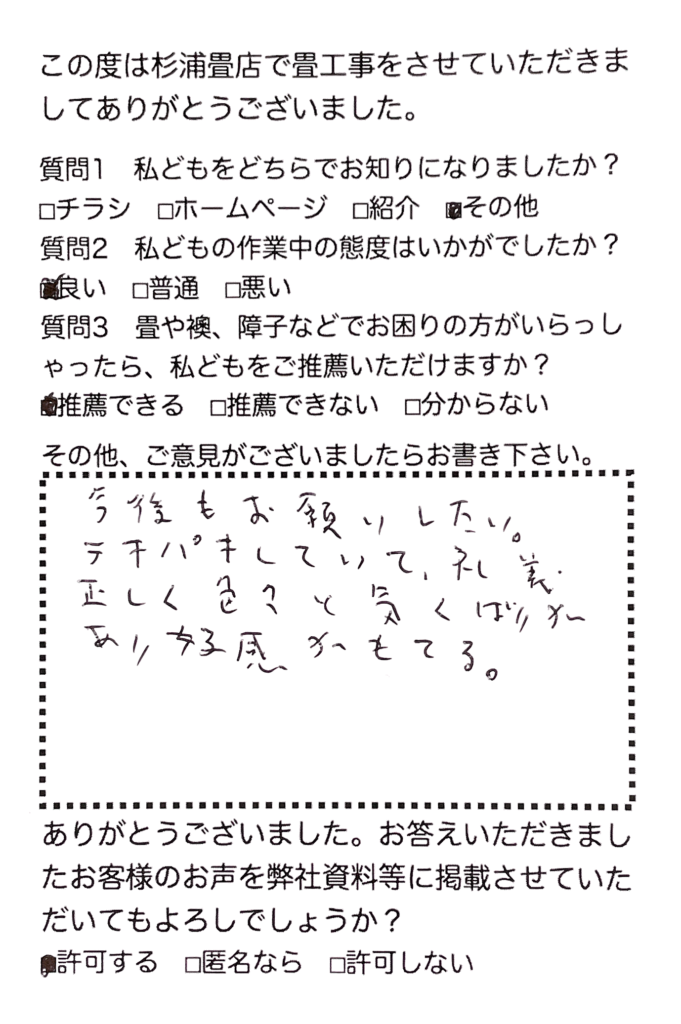 この度は杉浦畳店で畳工事をさせていただきま
してありがとうございました。
質問1　私どもをどちらでお知りになりましたか？
□チラシ　□ホームページ　□紹介　■その他
質問2　私どもの作業中の態度はいかがでしたか？
■良い　□普通　□悪い
質問3　畳や襖、障子などでお困りの方がいらっし
ゃったら、私どもをご推薦いただけますか？
■推薦できる　□推薦できない　□分からない
その他、ご意見がございましたらお書き下さい。
今後もお願いしたい。
テキパキしていて、礼義
正しく色々と気くばりが
あり好感がもてる。
ありがとうございました。お答えいただきまし
たお客様のお声を弊社資料等に掲載させていた
だいてもよろしでしょうか？
■許可する　□匿名なら　□許可しない